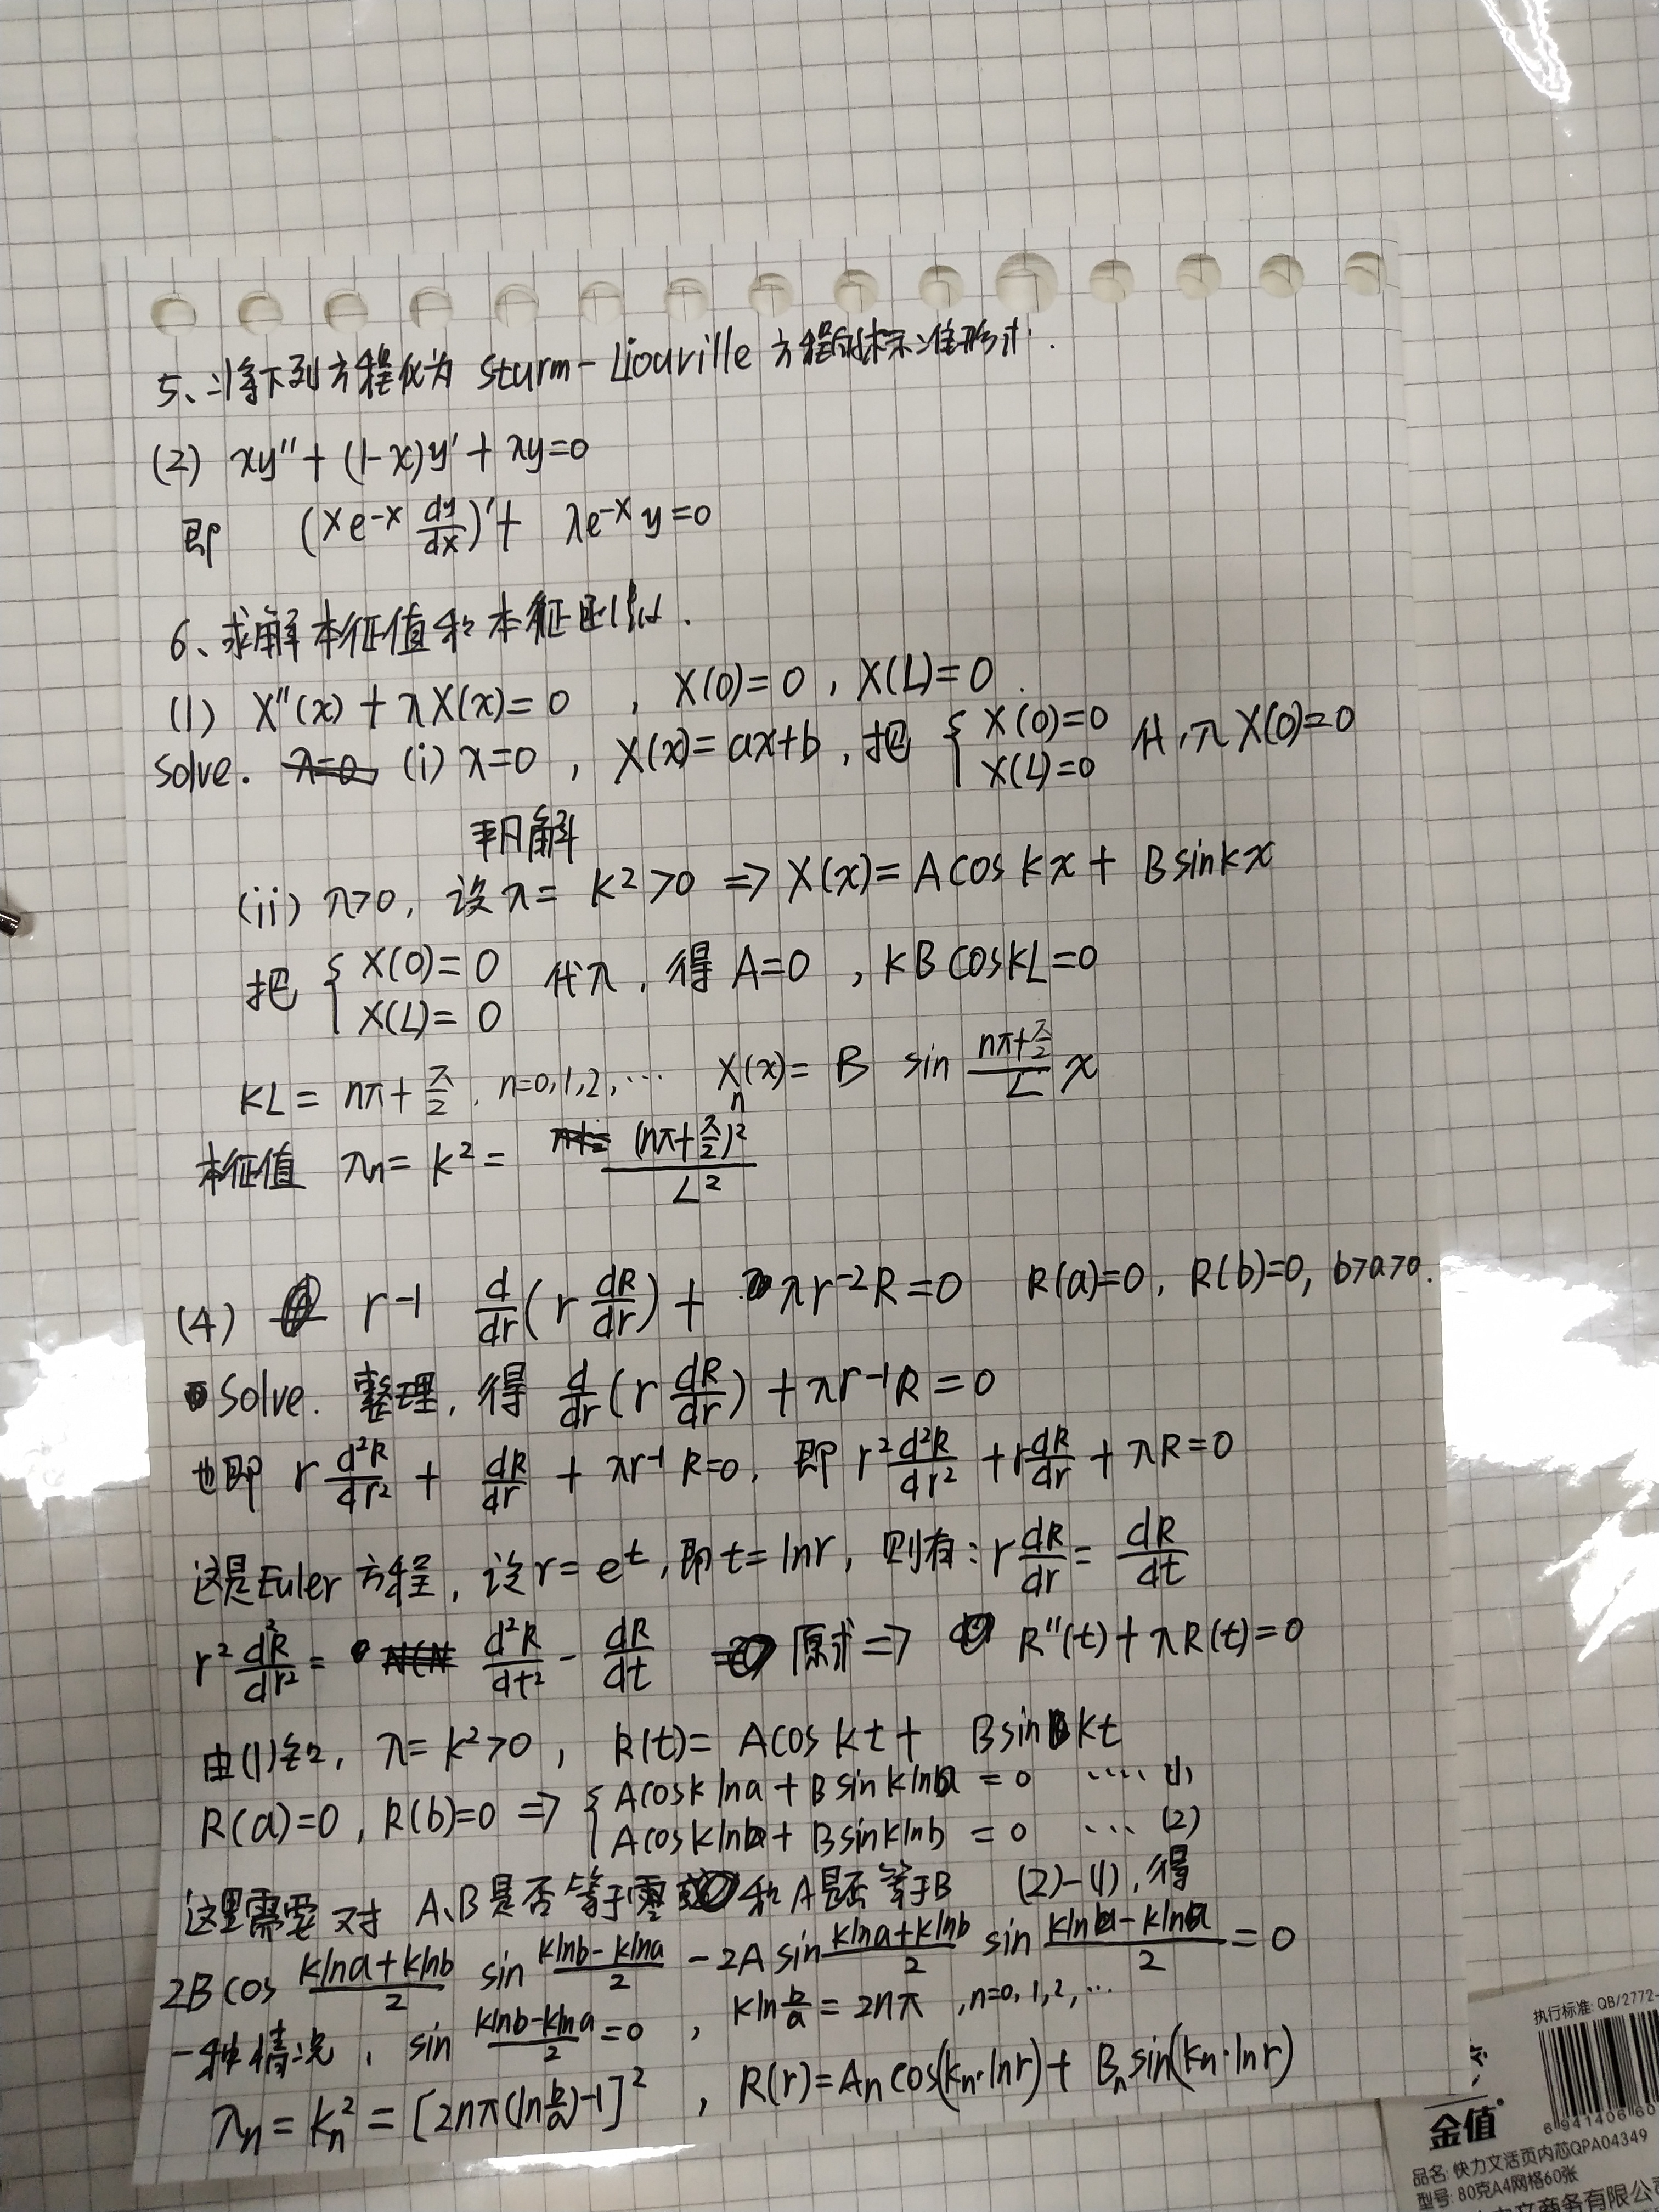 5、将下列方程化为 Sturm-Liouville 方程的标准形式.
(2) xy''+(1-x)y'+λy=0
即 (xe^-x dy/dx)'+ λe^-x y=0
6、求解本征值和本征函数.
(1) X''(x)+λX(x)=0 , X(0)=0 , X(L)=0.
Solve. (i) λ=0 , X(x)=ax+b , 把 { X(0)=0 X(L)=0 代入 X(0)=0
平凡解
(ii) λ>0, 设λ= k^2>0 => X(x)= A cos kx + B sin kx
把 { X(0)=0 X(L)=0 代入, 得 A=0 , kB cos kL=0
kL = nπ+π/2, n=0,1,2,… X_n(x)= B sin (nπ+π/2)/L x
本征值 λn= k^2 = (nπ+π/2)^2/L^2
(4) r^-1 d/dr(r dR/dr) + λr^-2R=0 R(a)=0, R(b)=0, b>a>0.
Solve. 整理, 得 d/dr(r dR/dr)+λr^-1R=0
也即 r d^2R/dr^2 + dR/dr + λr^-1 R=0, 即 r^2 d^2R/dr^2 + r dR/dr + λR=0
这是Euler 方程, 设 r= e^t, 即 t= lnr, 则有: r dR/dr = dR/dt
r^2 d^2R/dr^2 = d^2R/dt^2 - dR/dt 原式=> R''(t)+λR(t)=0
由(1)知, λ= k^2>0 , R(t)= A cos kt + B sin kt
R(a)=0, R(b)=0 => { A cos k lna + B sin k lna = 0 …. (1)
A cos k lnb + B sin k lnb = 0 … (2)
这里需要对 A、B是否等于零和A是否等于B (2)-(1), 得
2B cos (k lna+k lnb)/2 sin (k lnb-k lna)/2 - 2A sin (k lna+k lnb)/2 sin (k lnb-k lna)/2 = 0
一种情况, sin (k lnb-k lna)/2 =0 , k ln b/a = 2nπ , n=0,1,2,…
λn= kn^2 = [2nπ(ln b/a)^-1]^2 , R(r)= An cos(kn·lnr)+ Bn sin(kn·lnr)
执行标准: QB/2772-
6 941406 60
金值
品名: 快力文活页内芯QPA04349
型号: 80克A4网格60张
文商务有限公司